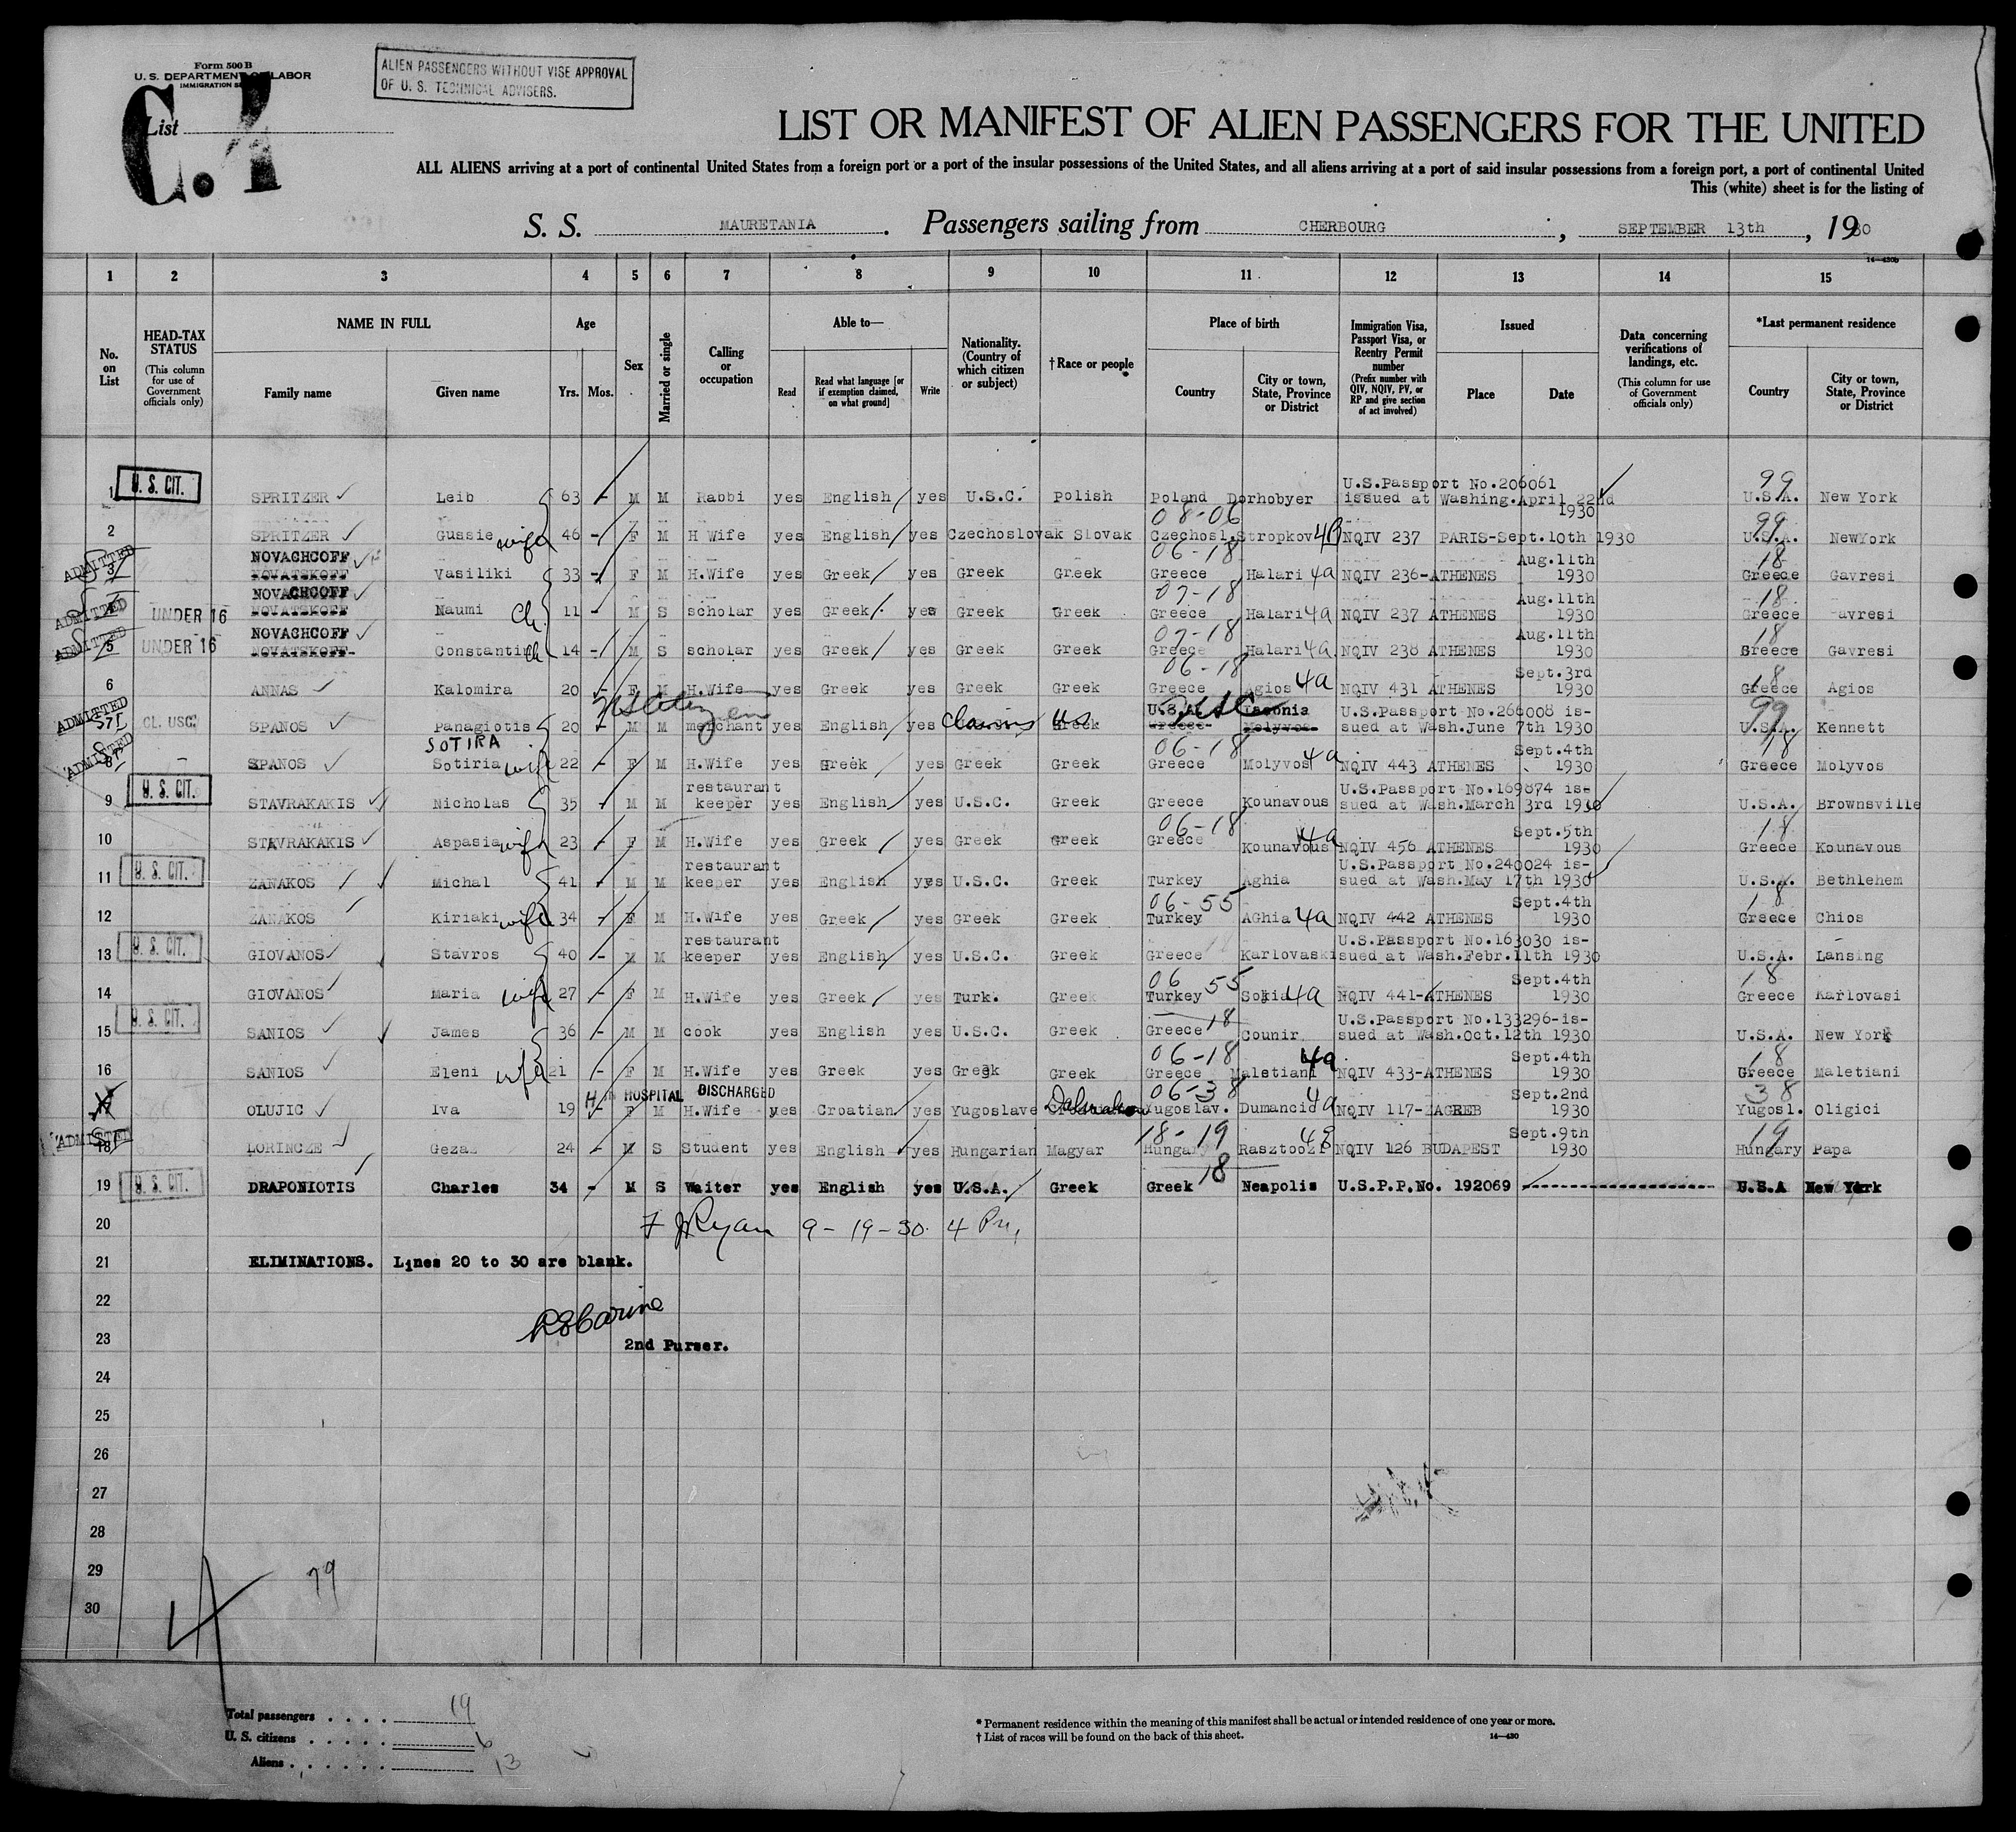 Form 500 B
U. S. DEPARTMENT OF LABOR
IMMIGRATION
List
ALIEN PASSENGERS WITHOUT VISE APPROVAL
OF U. S. TECHNICAL ADVISERS.
LIST OR MANIFEST OF ALIEN PASSENGERS FOR THE UNITED
ALL ALIENS arriving at a port of continental United States from a foreign port or a port of the insular possessions of the United States, and all aliens arriving at a port of said insular possessions from a foreign port, a port of continental United
This (white) sheet is for the listing of
S. S. MAURETANIA. Passengers sailing from CHERBOURG, SEPTEMBER 13th, 1930
14—430b
1 2 3 4 5 6 7 8 9 10 11 12 13 14 15
No. on List
HEAD-TAX STATUS (This column for use of Government officials only)
NAME IN FULL Family name Given name
Age Yrs. Mos.
Sex
Married or single
Calling or occupation
Able to— Read Read what language [or if exemption claimed, on what ground] Write
Nationality. (Country of which citizen or subject)
† Race or people
Place of birth Country City or town, State, Province or District
Immigration Visa, Passport Visa, or Reentry Permit number (Prefix number with QIV, NQIV, PV, or RP and give section of act involved)
Issued Place Date
Data concerning verifications of landings, etc. (This column for use of Government officials only)
*Last permanent residence Country City or town, State, Province or District
1 U. S. CIT. SPRITZER Leib 63 - M M Rabbi yes English yes U.S.C. Polish Poland Dorhobyer U.S.Passport No.206061 issued at Washing.April 22nd 1930 99 U.S.A. New York
2 SPRITZER Gussie wife 46 - F M H Wife yes English yes Czechoslovak Slovak 08-06 Czechosl. Stropkov 4B NQIV 237 PARIS-Sept.10th 1930 99 U.S.A. NewYork
ADMITTED 3 NOVACHCOFF NOVATSKOFF Vasiliki 33 - F M H.Wife yes Greek yes Greek Greek 06-18 Greece Halari 4a NQIV 236-ATHENES Aug.11th 1930 18 Greece Gavresi
ADMITTED 4 UNDER 16 NOVACHCOFF NOVATSKOFF Naumi Ch. 11 - M S scholar yes Greek yes Greek Greek 07-18 Greece Halari 4a NQIV 237 ATHENES Aug.11th 1930 18 Greece Gavresi
ADMITTED 5 UNDER 16 NOVACHCOFF NOVATSKOFF Constantin Ch 14 - M S scholar yes Greek yes Greek Greek 07-18 Greece Halari 4a NQIV 238 ATHENES Aug.11th 1930 18 Greece Gavresi
6 ANNAS Kalomira 20 - F M H.Wife yes Greek yes Greek Greek 06-18 Greece Agios 4a NQIV 431 ATHENES Sept.3rd 1930 18 Greece Agios
ADMITTED 7 CL. USC. SPANOS Panagiotis 20 - M M merchant US Citizen yes English yes Claims US Greek U.S.A. USC Greece Molyvos U.S.Passport No.266008 issued at Wash.June 7th 1930 99 U.S.A. Kennett
ADMITTED 8 SPANOS SOTIRA Sotiria wife 22 - F M H.Wife yes Greek yes Greek Greek 06-18 Greece Molyvos 4a NQIV 443 ATHENES Sept.4th 1930 18 Greece Molyvos
9 U. S. CIT. STAVRAKAKIS Nicholas 35 - M M restaurant keeper yes English yes U.S.C. Greek Greece Kounavous U.S.Passport No.169874 issued at Wash.March 3rd 1930 U.S.A. Brownsville
10 STAVRAKAKIS Aspasia wife 23 - F M H.Wife yes Greek yes Greek Greek 06-18 Greece Kounavous 4a NQIV 456 ATHENES Sept.5th 1930 18 Greece Kounavous
11 U. S. CIT. ZANAKOS Michal 41 - M M restaurant keeper yes English yes U.S.C. Greek Turkey Aghia U.S.Passport No.240024 issued at Wash.May 17th 1930 U.S.A. Bethlehem
12 ZANAKOS Kiriaki wife 34 - F M H.Wife yes Greek yes Greek Greek 06-55 Turkey AGhia 4a NQIV 442 ATHENES Sept.4th 1930 18 Greece Chios
13 U. S. CIT. GIOVANOS Stavros 40 - M M restaurant keeper yes English yes U.S.C. Greek Greece 18 Karlovaski U.S.Passport No.163030 issued at Wash.Febr.11th 1930 U.S.A. Lansing
14 GIOVANOS Maria wife 27 - F M H.Wife yes Greek yes Turk. Greek 06 55 Turkey Sokia 4a NQIV 441-ATHENES Sept.4th 1930 18 Greece Karlovasi
15 U. S. CIT. SANIOS James 36 - M M cook yes English yes U.S.C. Greek Greece 18 Counir U.S.Passport No.133296-issued at Wash.Oct.12th 1930 U.S.A. New York
16 SANIOS Eleni wife 21 - F M H.Wife yes Greek yes Greek Greek 06-18 Greece Maletiani 4a NQIV 433-ATHENES Sept.4th 1930 18 Greece Maletiani
17 OLUJIC Iva 19 - F M H.Wife IN HOSPITAL DISCHARGED yes Croatian yes Yugoslave Dalmatian 06-38 Yugoslav. Dumancid 4a NQIV 117-ZAGREB Sept.2nd 1930 38 Yugosl. Oligici
ADMITTED 18 LORINCZE Geza 24 - M S Student yes English yes Hungarian Magyar 18-19 Hungary Rasztoozi NQIV 126 BUDAPEST Sept.9th 1930 19 Hungary Papa
19 U. S. CIT. DRAPONIOTIS Charles 34 - M S Waiter yes English yes U.S.A. Greek Greek 18 Neapolis U.S.P.P.No. 192069 U.S.A New York
20 F J Ryan 9-19-30. 4 Pm.
21 ELIMINATIONS. Lines 20 to 30 are blank.
22
23 2nd Purser.
24
25
26
27
28
29 79
30
Total passengers . . . . 19
U. S. citizens . . . . . 6
Aliens . . . . . . 13
* Permanent residence within the meaning of this manifest shall be actual or intended residence of one year or more.
† List of races will be found on the back of this sheet.
14—430